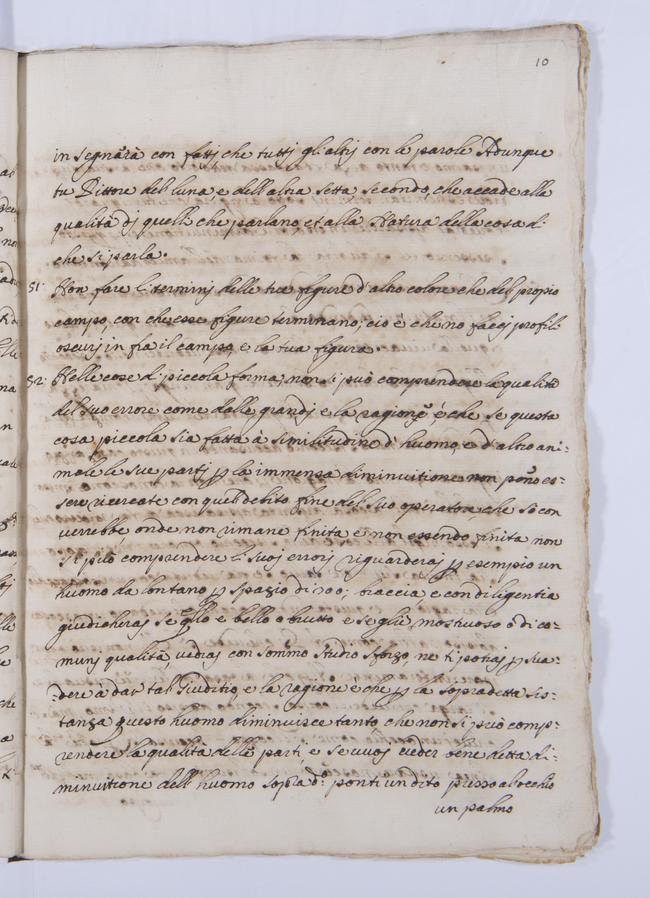 10
in segnàra con fattj, che tuttj gl'altrj con le parole Adunque
tu Pittore dell'una e dell'altra setta secondo, che accade alla
qualità dj quelli che parlano, et alla Natura della cosa di
che si parla.
51. Non fare li terminj delle tue figure d'altro colore che del propio
campo, con che esse figure terminano; cio è che no faccj profili
oscurj in fra il campo, e la tua figura.
52. Nelle cose di piccola forma; non si può comprendere la qualità
del suo errore come dalle grandj e la ragione è che se questa
cosa piccola sia fatta à similitudine d'huomo, e d'altro ani:
male le sue partj p la immensa diminuitione non pono es:
sere ricercate con quel debito fine dal suo operatore, che si con
verrebbe onde non rimane finita, e non essendo finita non
si può comprendere li suoj errorj riguarderaj p esempio un
huomo da lontano p spazio di 300; braccia e con diligentia
giudicheraj se egllo e bello o brutto e se gliè mostruoso o di co:
munj qualità, vedraj con sommo studio sforzo, ne ti potraj p sua:
dere à dar tal Giuditio, e la ragione è che p la sopradetta dis:
tanza questo huomo diminuisce tanto, che non si può comp:
rendere la qualità delle parti, e se vuoj veder bene detta di:
minuitione dell'huomo sopra do: ponti un dito presso al occhio
un palmo